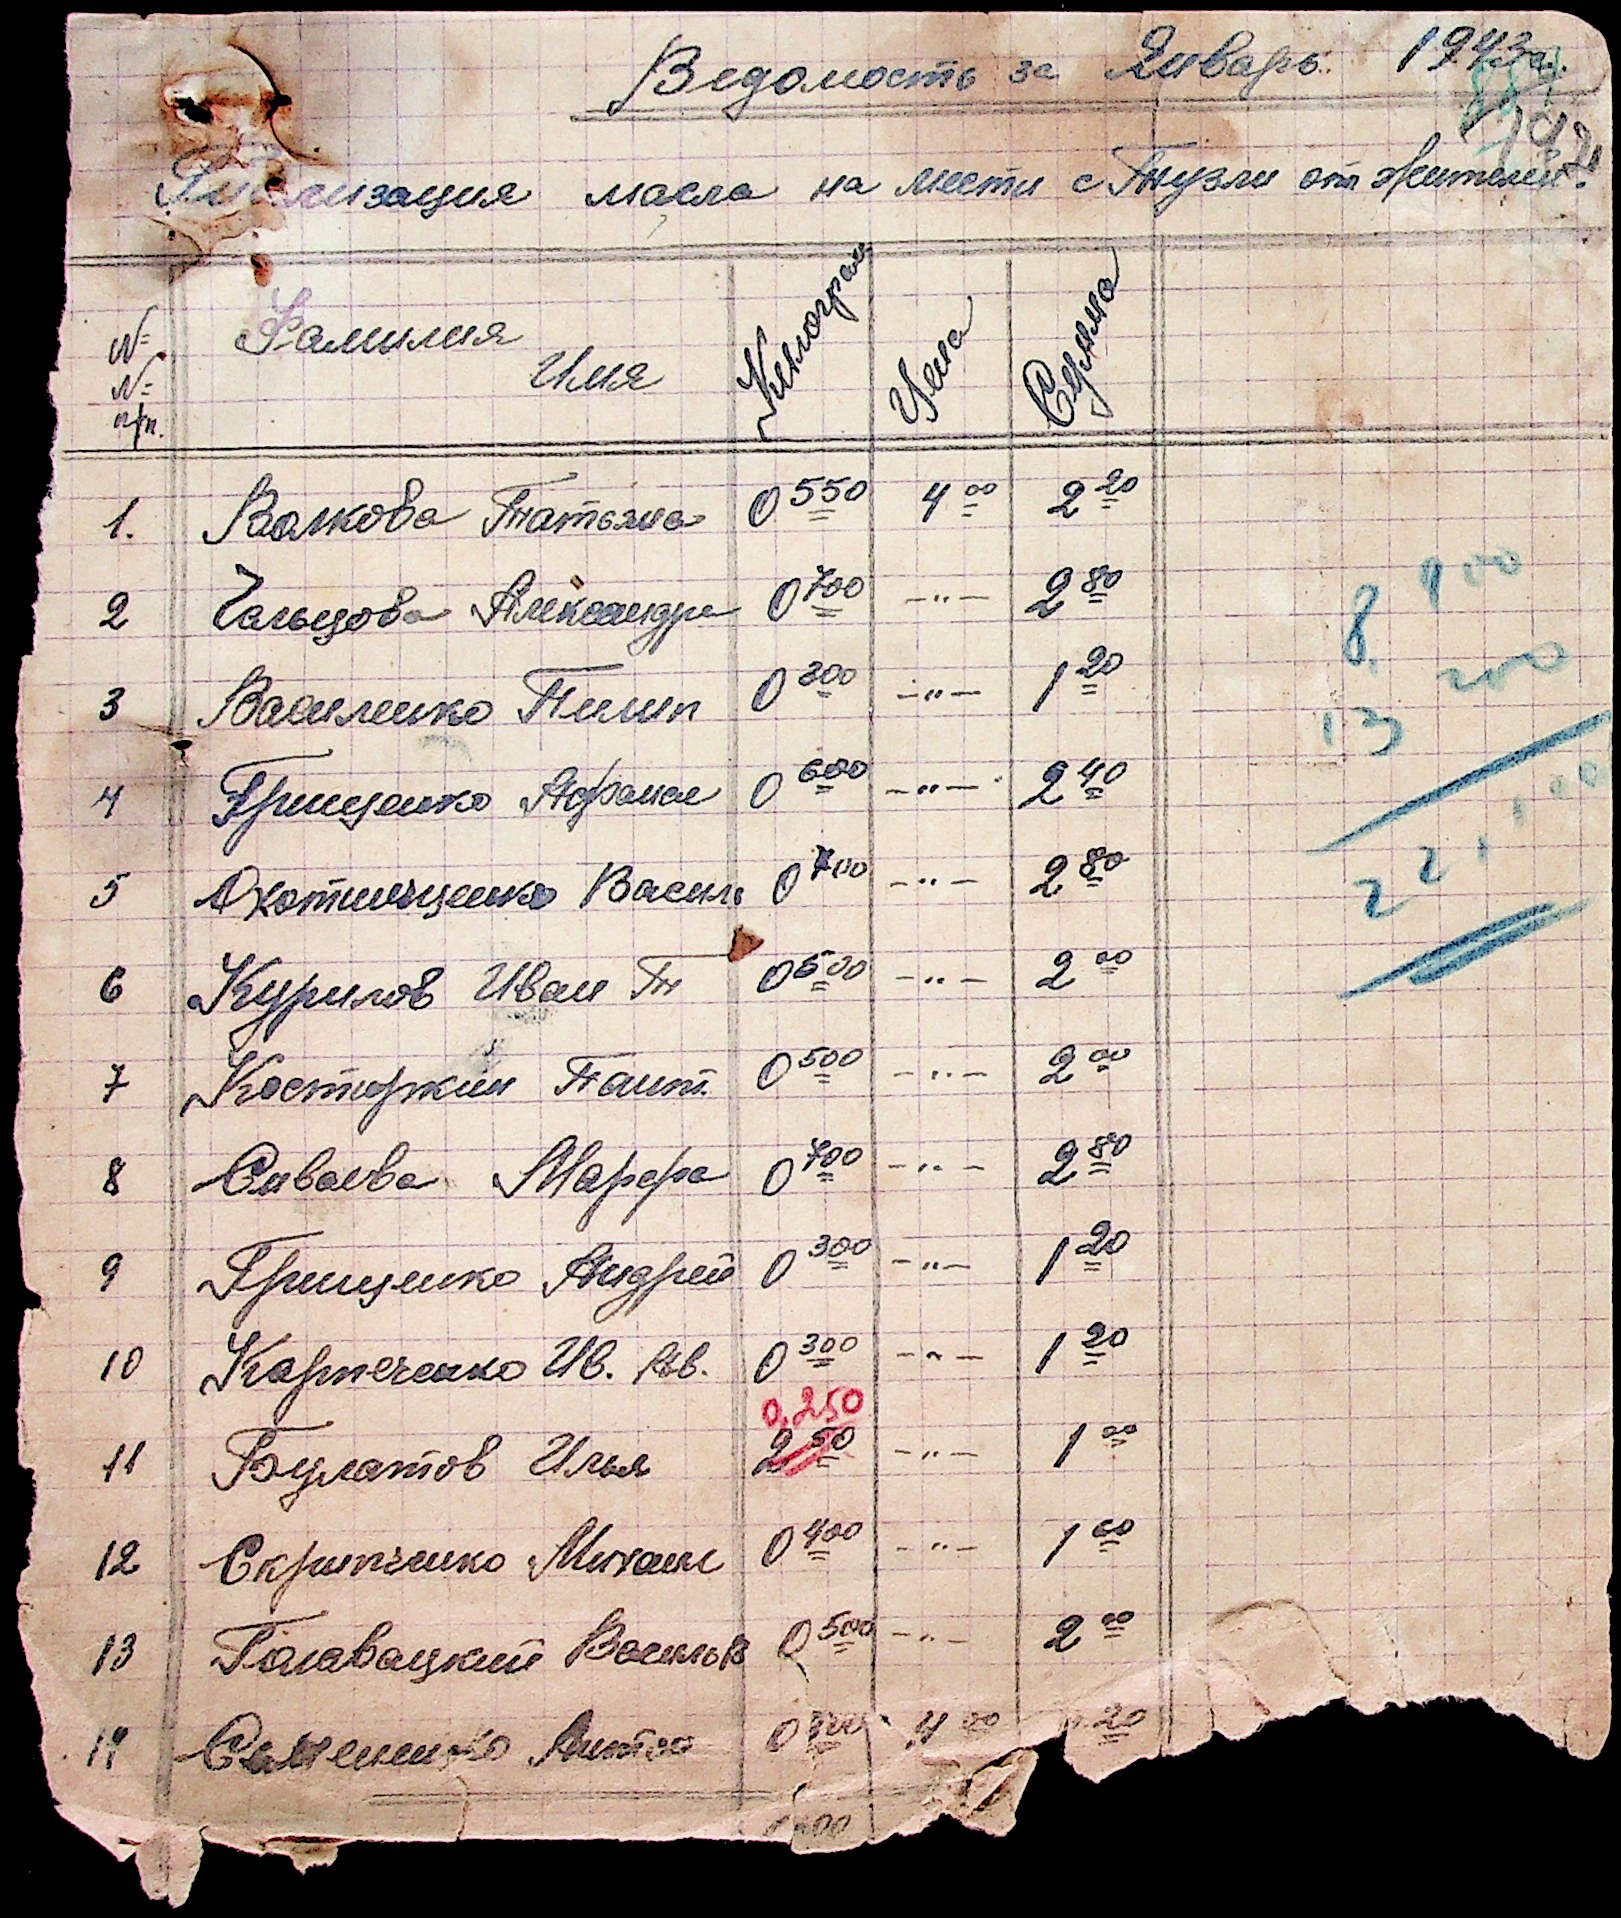 Ведомость за Январь 1943 г.
Реализация масла на месте с Тузли от жителей.
№ № п/п. Фамилия Имя Килограм Цена Сумма
1. Волкова Татьяна 0 550 4 00 2 20
2 Гальцова Александра 0 700 -"- 2 80
3 Василенко Пилип 0 300 -"- 1 20
4 Грищенко Афанас 0 600 -"- 2 40
5 Охотниченко Василь 0 700 -"- 2 80
6 Курилов Иван П 0 500 -"- 2 00
7 Костюркин Пант. 0 500 -"- 2 00
8 Саваева Марфа 0 700 -"- 2 80
9 Грищенко Андрей 0 300 -"- 1 20
10 Карпеченко Ив. Ив. 0 300 -"- 1 20
0,250
11 Булатов Илья 2 50 -"- 1 00
12 Скрипченко Михаил 0 400 -"- 1 60
13 Головацкий Василь В 0 500 -"- 2 00
14 Семененко Антон 0 300 4 00 20
8.
13
200